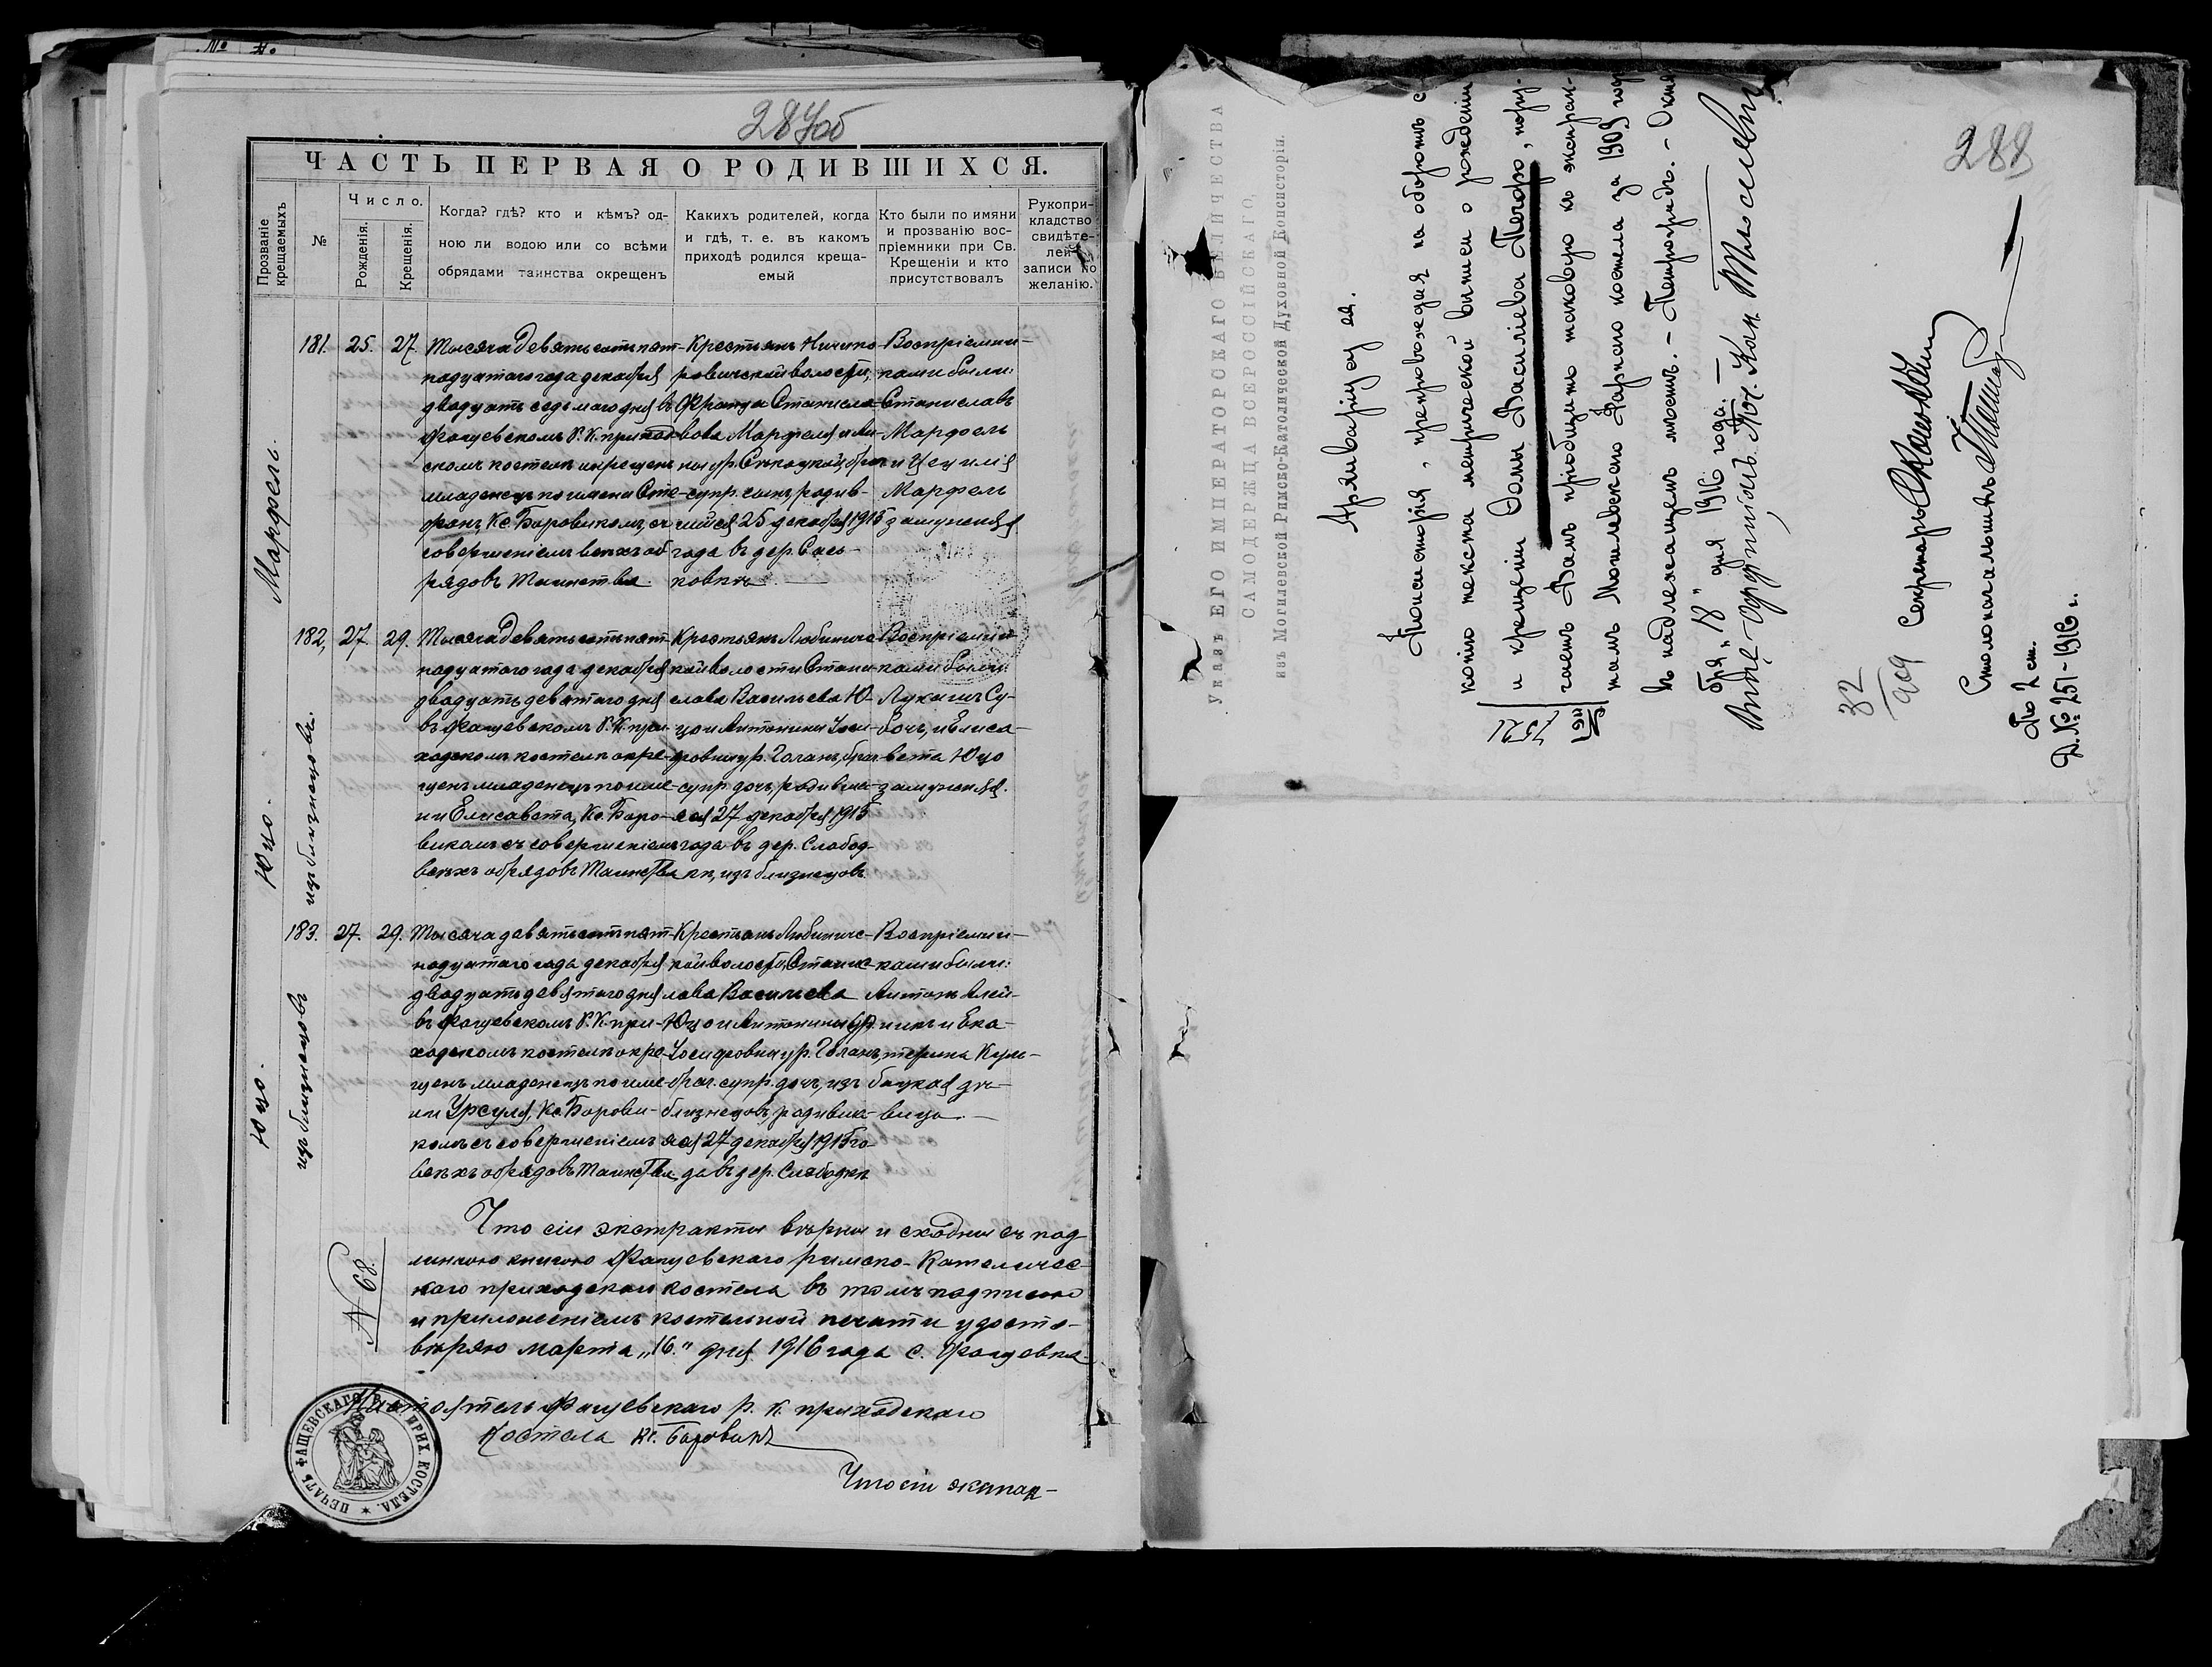 287об
ЧАСТЬ ПЕРВАЯ О РОДИВШИХСЯ.
Прозваніе крещаемыхъ
№
Число.
Рожденія.
Крещенія.
Когда? гдѣ? кто и кѣмъ? од-
ною ли водою или со всѣми
обрядами таинства окрещенъ
Какихъ родителей, когда
и гдѣ, т. е. въ какомъ
приходѣ родился креща-
емый
Кто были по имяни
и прозванію вос-
пріемники при Св.
Крещеніи и кто
присутствовалъ
Рукопри-
кладство
свидѣте-
лей
записи по
желанію.
Марфель.
181. 25. 27.
Тысяча девятьсотъ пят-
надцатаго года декабря
двадцать седьмого дня въ
Фащевскомъ Р. К. приход-
скомъ костелѣ окрещенъ
младенецъ по имени Сте-
фанъ, Кс. Боровикомъ, съ
совершеніемъ всѣхъ об-
рядовъ Таинства.
Крестьянъ Ничипо-
ровичской волости,
Франца Станисла-
вова Марфеля и
супр. сынъ, родив-
шійся 25 декабря 1915
года въ дер.
Воспріемни-
ками были:
Станиславъ
Марфель
и Цецилія
Марфель
замужняя
Юцо.
изъ близнецовъ.
182, 27. 29.
Тысяча девятьсотъ пят-
надцатаго года декабря
двадцать девятого дня
въ Фащевскомъ Р. К. при-
ходскомъ костелѣ окре-
щенъ младенецъ по име-
ни Елисавета, Кс. Боро-
викомъ съ совершеніемъ
всѣхъ обрядовъ Таинства
Крестьянъ Любиничс-
кой волости Стани-
слава Васильева Ю-
цо и Антонины Іоси-
фовны ур. Голанъ, брач.
супр. дочь, родивша-
яся 27 декабря 1915
года въ дер. Слобод-
кѣ, изъ близнецовъ
Воспріемни-
ками были:
Лукашъ Су-
бочъ, и Елиса-
вета Юцо
замужняя.
Юцо.
изъ близнецовъ
183. 27. 29.
Тысяча девятьсотъ пят-
надцатаго года декабря
двадцать девятого дня
въ Фащевскомъ Р. К. при-
ходскомъ костелѣ окре-
щенъ младенецъ по име-
ни Урсуля, Кс. Борови-
комъ съ совершеніемъ
всѣхъ обрядовъ Таинства
Крестьянъ Любиничс-
кой волости, Станис-
лава Васильева
Юцо и Антонины
Іосифовны ур. Голанъ,
брач. супр. дочь, изъ
близнецовъ, родивша-
яся 27 декабря 1915 го-
да въ дер. Слободкѣ
Воспріемни-
ками были:
Антонъ
и Ека-
терина Куль-
бацкая дѣ-
вица.
N 68.
Что сіи экстракты вѣрны и сходны съ под-
линною книгою Фащевскаго римско-Католичес-
каго приходскаго костела въ томъ подписью
и приложеніемъ костельной печати удосто-
вѣряю марта „16." дня 1916 года с. Фащевка
Настоятель Фащевскаго р. к. приходскаго
Костела Кс. Боровикъ
Что сіи экстрак-
ПЕЧАТЬ ФАЩЕВСКАГО Р. К. ПРИХ. КОСТЕЛА.
288
Указъ ЕГО ИМПЕРАТОРСКАГО ВЕЛИЧЕСТВА
САМОДЕРЖЦА ВСЕРОССІЙСКАГО,
изъ Могилевской Римско-Католической Духовной Консисторіи.
Архиваріусу ея.
Консисторія, препровождая на оборотѣ с
копію текста метрической выписи о рожденіи
и крещеніи Домы Васильева Печоро, пору-
чаетъ Вамъ пріобщить таковую къ экстрак-
тамъ Могилевскаго Фарнаго костела за 1909 годъ
въ надлежащемъ мѣстѣ. - Петроградъ. - Октя
бря „18" дня 1916 года. -
Вице-Оффиціалъ
Секретарь
Столоначальникъ
№ 7521
32
909
По 2 ст.
Д. № 251-1916 г.